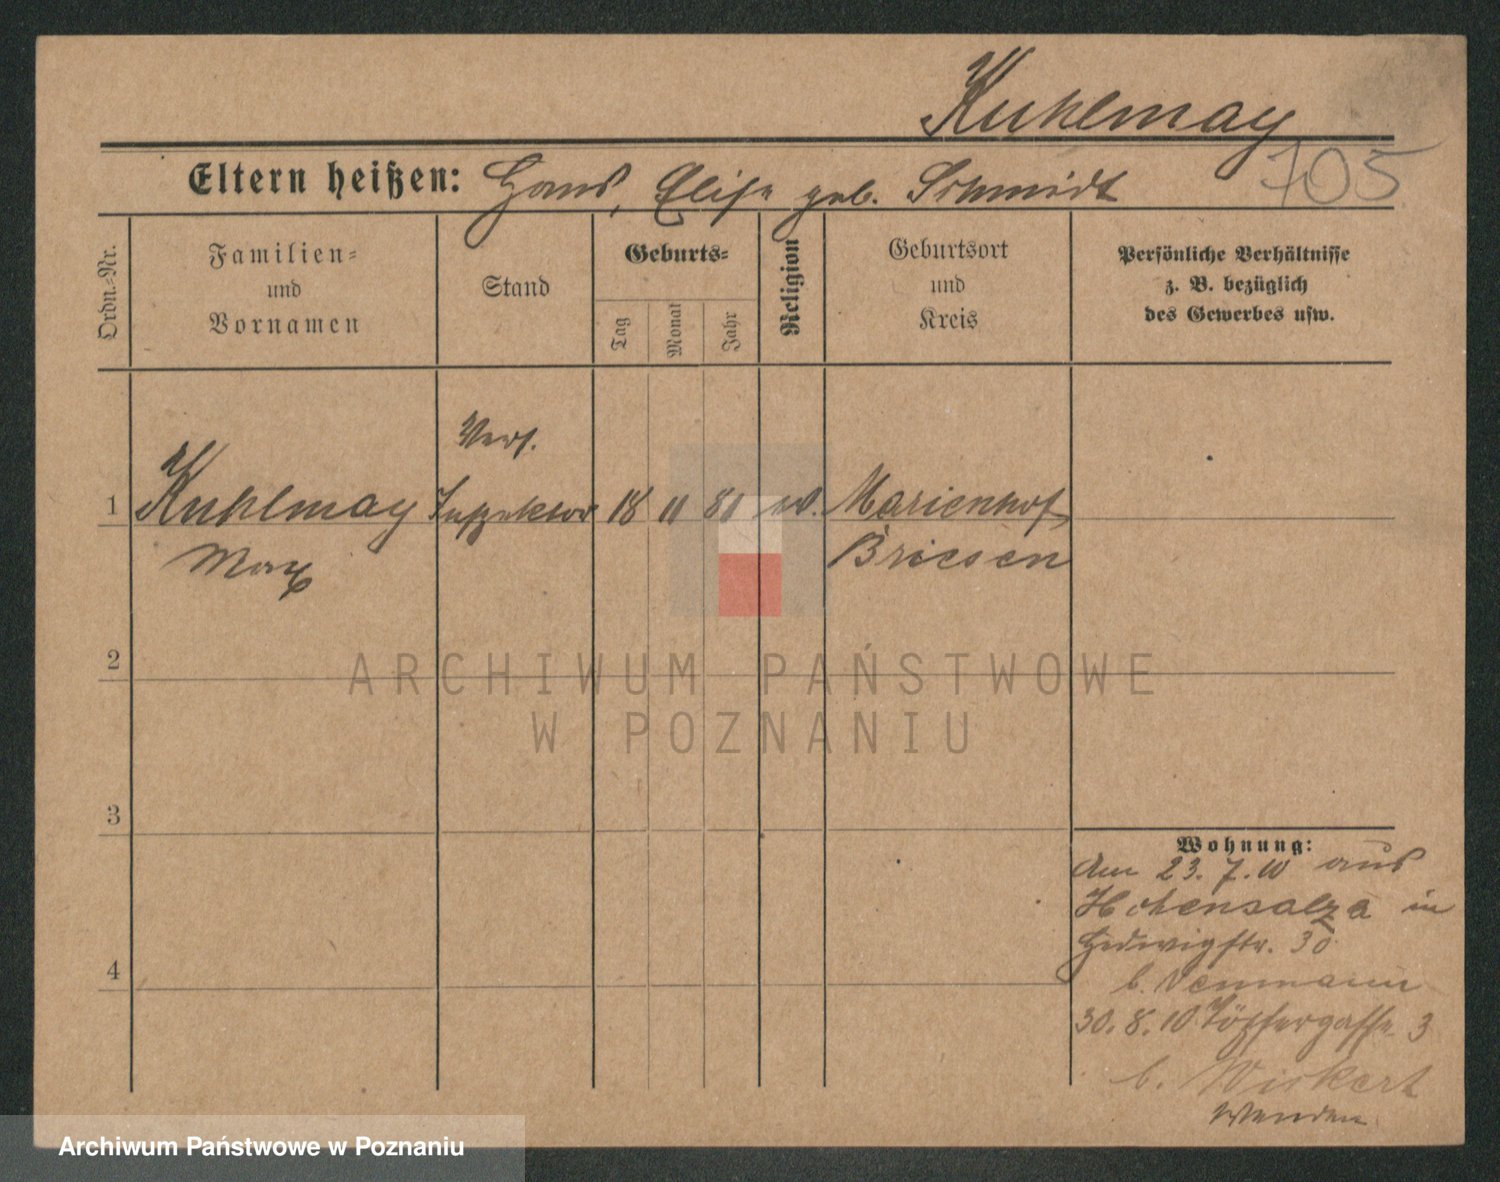 Kuhlmay
Eltern heißen: Hans, Elise geb. Schmidt
705
Ordn.-Nr.
Familien- und Vornamen
Stand
Geburts-
Tag
Monat
Jahr
Religion
Geburtsort und Kreis
Persönliche Verhältnisse
z. B. bezüglich
des Gewerbes usw.
Vers.
1 Kuhlmay Inspektor 18 11 81 Marienhof
Max Briesen
2
3
4
Wohnung:
Am 23. 7. 10 aus
Hohensalza in
Hedwigstr. 30
b.
30. 8. 10 Töpfergasse 3
b. Wickert
Wenden
ARCHIWUM PAŃSTWOWE
W POZNANIU
Archiwum Państwowe w Poznaniu